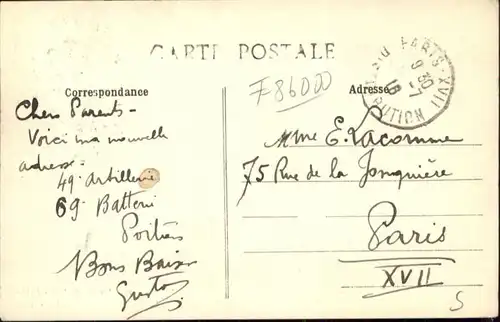 CARTE POSTALE
Correspondance
Adresse
F86000
PARIS XVII
9 30
16
BUTION
Chers Parents -
Voici ma nouvelle
adresse -
49e Artillerie
69e Batterie
Poitiers
Bons Baisers
Mme E. Lacomme
75 Rue de la Jonquière
Paris
XVII
S